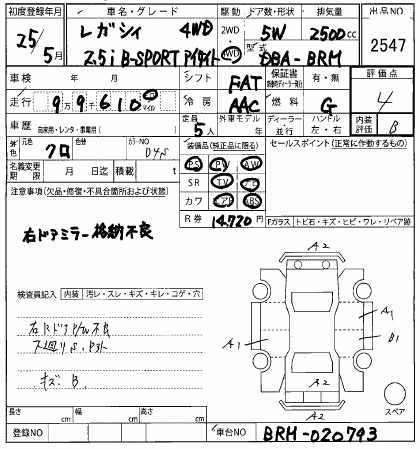 初度登録年月 車名・グレード 駆動 ドア数・形状 排気量 出品NO
25年5月 レガシィ 4WD 2WD 4WD 5W 2500cc 2547
2.5i B-SPORT アイサイト 型式 DBA-BRM
車検 年 月 シフト FAT 保証書 有・無 評価点
走行 99610 km マイル 冷房 AAC 燃料 G 4
車歴 自家用・レンタ・事業用( ) 定員 5人 外車モデル 年 ディーラー 並行 ハンドル 左・右 内装評価 B
外色 元色 クロ 色替 カラーNO D4S 装備品(純正品に限る) セールスポイント(正常に作動するもの)
名義変更期限 月 日迄 積載 t PS PW AW
注意事項(欠品・修復・不具合箇所および状態) SR TV ナビ
カワ エアB ABS
R券 14,720円
右ドアミラー格納不良
Fガラス トビ石・キズ・ヒビ・ワレ・リペア跡
A2
検査員記入 内装 汚レ・スレ・キズ・キレ・コゲ・穴
A1 A1
下廻りS.
キズ B
A2
スペア
長さ cm 幅 cm 高さ cm
登録NO 車台NO BRM-020793